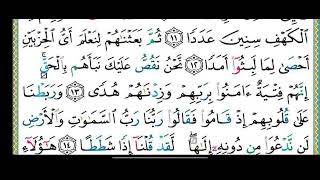 ٱلْكَهْفِ سِنِينَ عَدَدًا ١١ ثُمَّ بَعَثْنَٰهُمْ لِنَعْلَمَ أَىُّ ٱلْحِزْبَيْنِ
أَحْصَىٰ لِمَا لَبِثُوٓا۟ أَمَدًا ١٢ نَّحْنُ نَقُصُّ عَلَيْكَ نَبَأَهُم بِٱلْحَقِّ
إِنَّهُمْ فِتْيَةٌ ءَامَنُوا۟ بِرَبِّهِمْ وَزِدْنَٰهُمْ هُدًى ١٣ وَرَبَطْنَا
عَلَىٰ قُلُوبِهِمْ إِذْ قَامُوا۟ فَقَالُوا۟ رَبُّنَا رَبُّ ٱلسَّمَٰوَٰتِ وَٱلْأَرْضِ
لَن نَّدْعُوَا۟ مِن دُونِهِۦٓ إِلَٰهًا لَّقَدْ قُلْنَآ إِذًا شَطَطًا ١٤ هَٰٓؤُلَآءِ